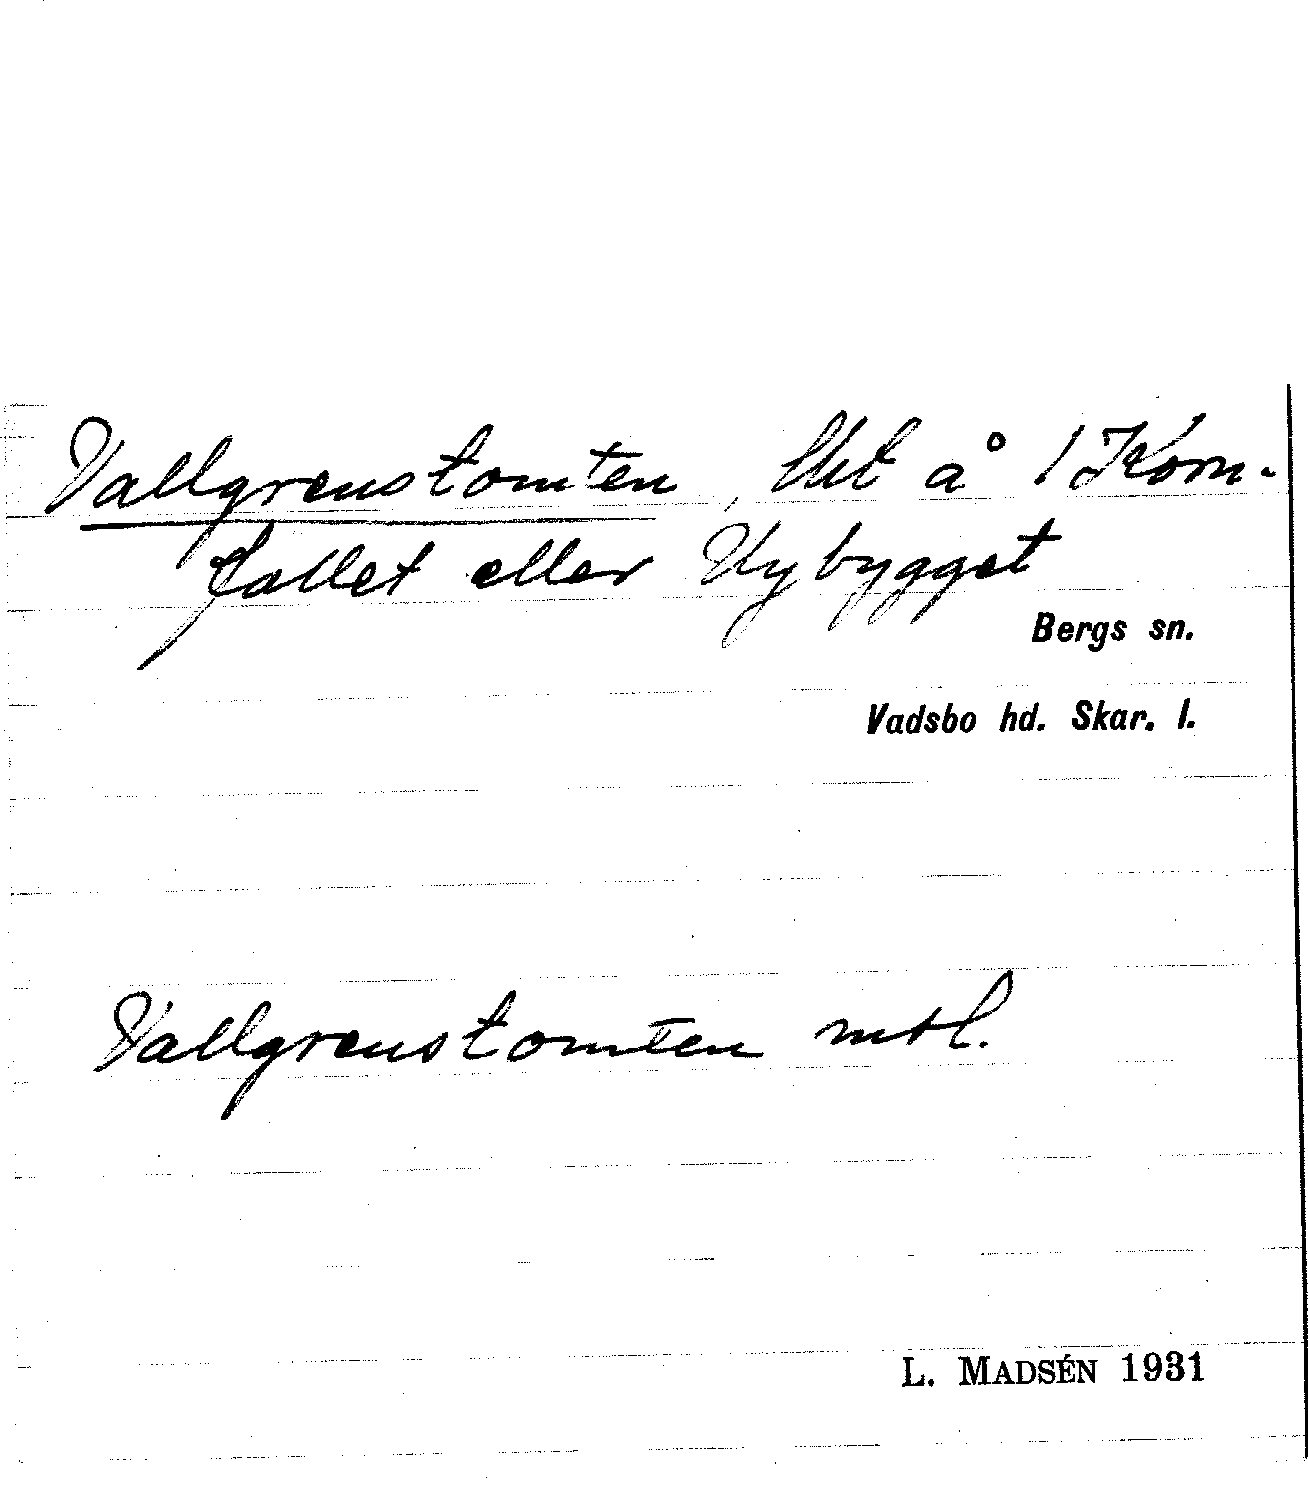 Vallgrenstomten, lht å 1 Korn-
fallet eller Nybygget
Bergs sn.
Vadsbo hd. Skar. l.
Vallgrenstomten mtl.
L. MADSÉN 1931